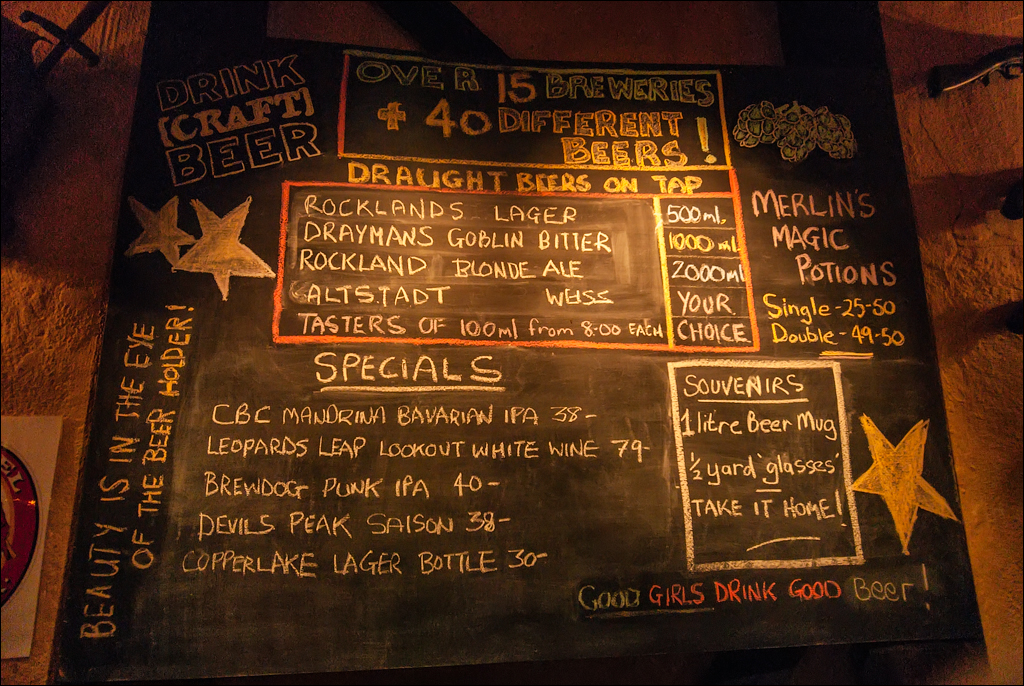 DRINK
[CRAFT]
BEER
OVER 15 BREWERIES
+ 40 DIFFERENT
BEERS!
DRAUGHT BEERS ON TAP
ROCKLANDS LAGER 500ml.
DRAYMANS GOBLIN BITTER 1000ml
ROCKLAND BLONDE ALE 2000ml
ALTSTADT WEISS YOUR
TASTERS OF 100ml from 8.00 EACH CHOICE
MERLIN'S
MAGIC
POTIONS
Single - 25-50
Double - 49-50
BEAUTY IS IN THE EYE
OF THE BEER HOLDER!
SPECIALS
CBC MANDRINA BAVARIAN IPA 38-
LEOPARDS LEAP LOOKOUT WHITE WINE 79-
BREWDOG PUNK IPA 40-
DEVILS PEAK SAISON 38-
COPPERLAKE LAGER BOTTLE 30-
SOUVENIRS
1 litre Beer Mug
½ yard 'glasses'
TAKE IT HOME!
GOOD GIRLS DRINK GOOD Beer!